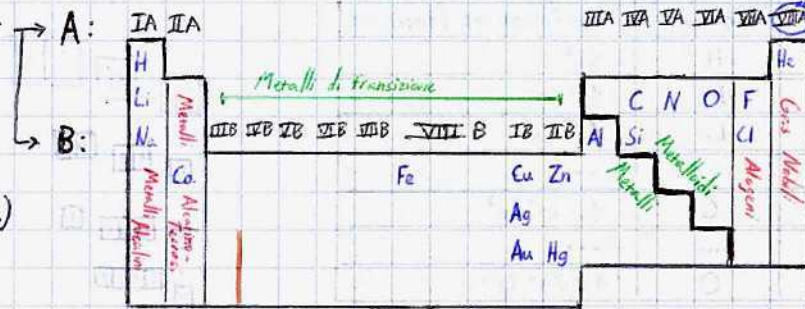 A: IA IIA IIIA IVA VA VIA VIIA VIIIA
H He
Metalli di transizione
Li C N O F
B: Na IIIB IVB VB VIB VIIB VIII B IB IIB Al Si Cl
Ca Fe Cu Zn
Ag
Au Hg
Metalli Alcalini
Metalli Alcalino-Terrosi
Metalli
Metalloidi
Alogeni
Gas Nobili